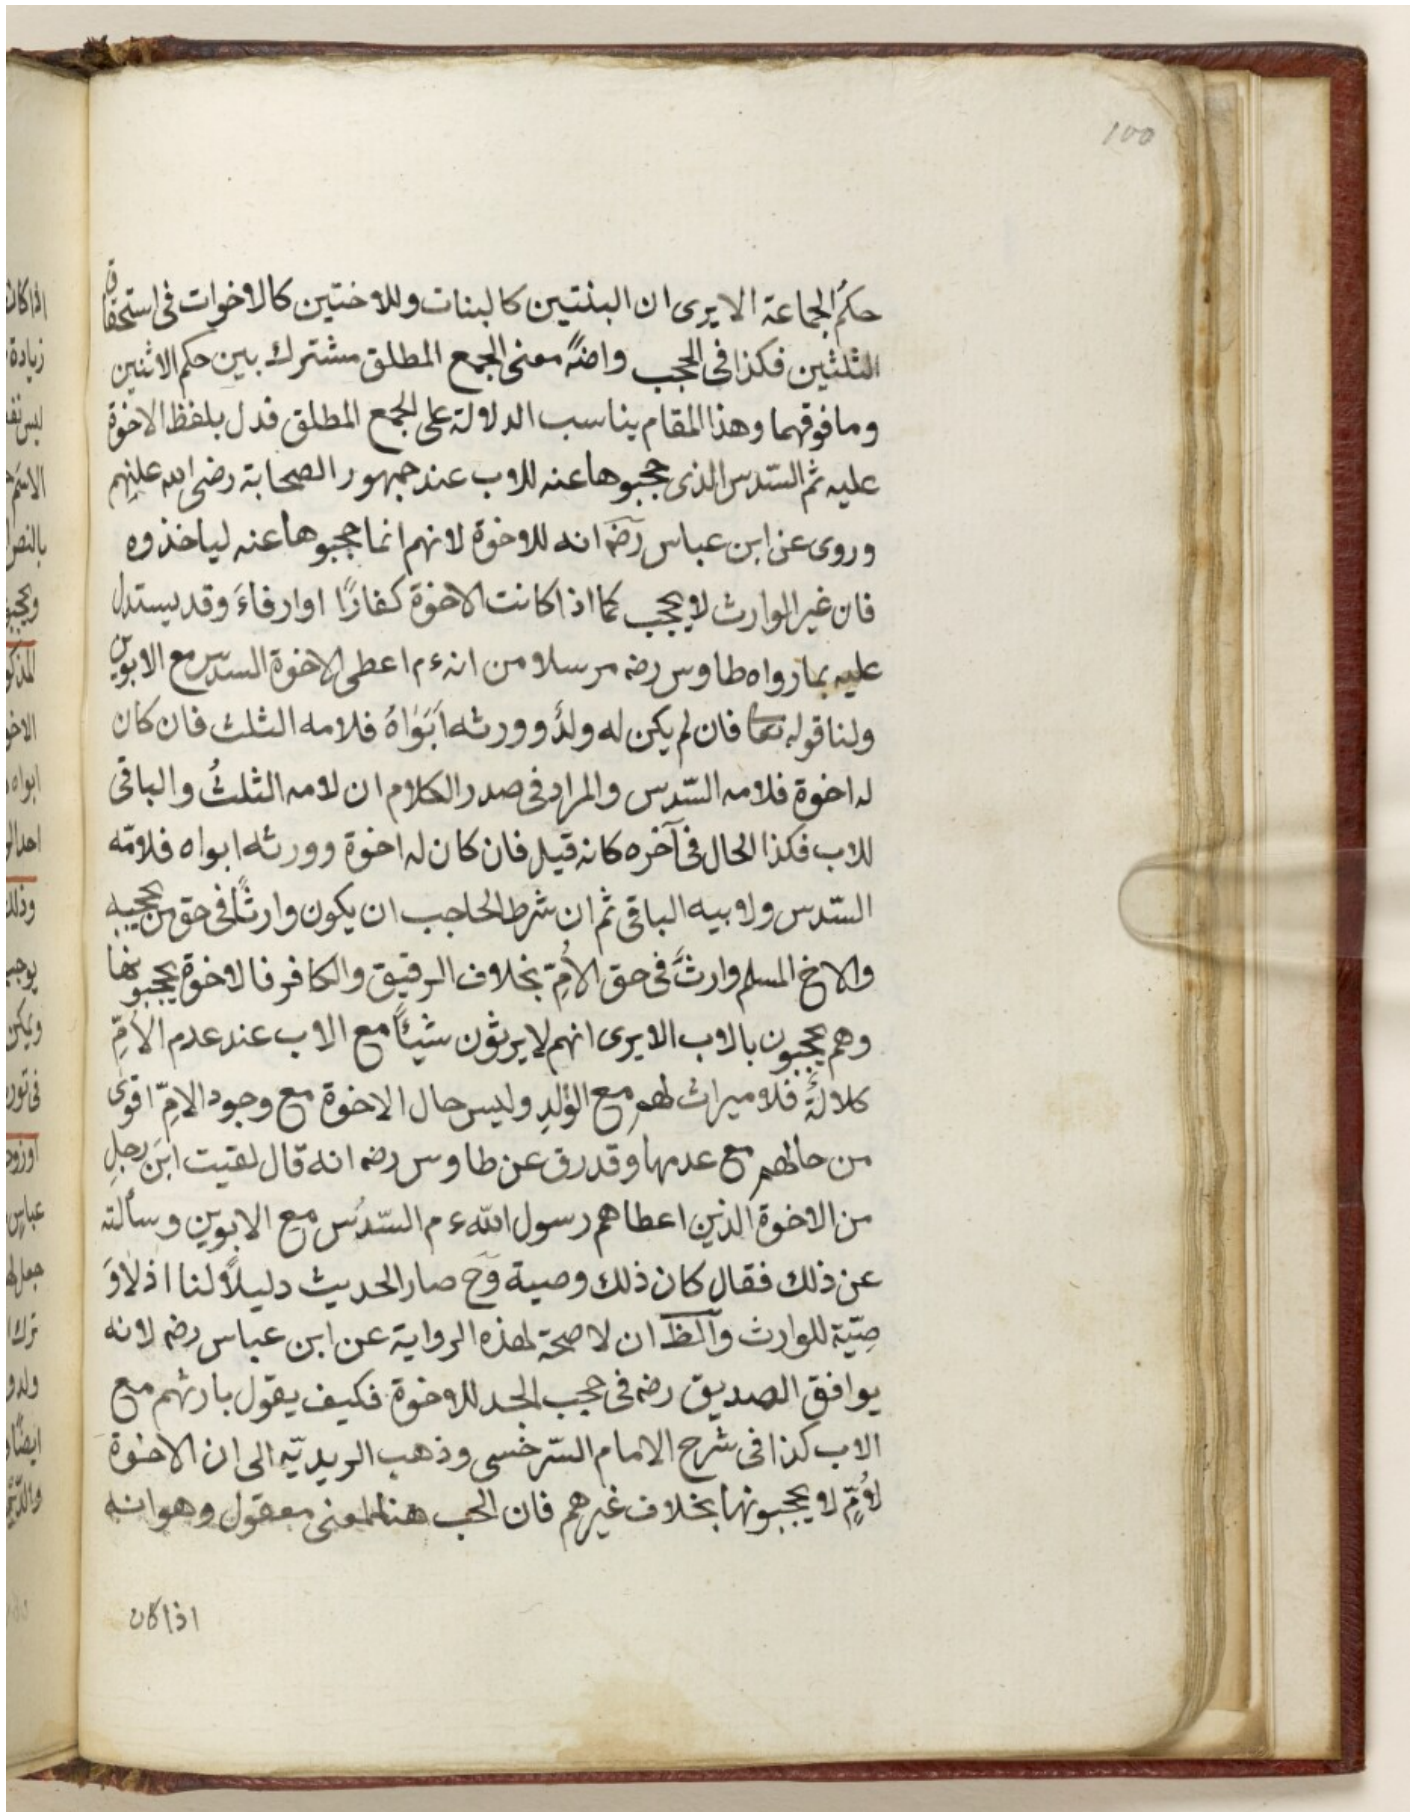 100
حكمُ الجماعة الا يرى ان البنتين كالبنات وللاختين كالاخوات فى استحقاق
الثلثين فكذا فى الحجب وايضًا معنى الجمع المطلق مشترك بين حكم الاثنين
وما فوقهما وهذا المقام يناسب الدلالة على الجمع المطلق فدل بلفظ الاخوة
عليه ثم السّدس الذى حجبوها عنه للاب عند جمهور الصحابة رضى الله عليهم
وروى عن ابن عباس رضه انه للاخوة لانهم انما حجبوها عنه لياخذوه
فان غير الوارث لا يحجب كما اذا كانت الاخوة كفارًا او ارقاءَ وقد يستدل
عليه بما رواه طاوس رضه مرسلا من انه ءم اعطى الاخوة السدس مع الابوين
ولنا قوله تعا فان لم يكن له ولدٌ وورثه أبَوَاهُ فلامه الثلث فان كان
له اخوة فلامه السّدس والمراد فى صدر الكلام ان لامه الثلثُ والباقى
للاب فكذا الحال فى آخره كانه قيل فان كان له اخوة وورثه ابواه فلامّه
السّدس ولابيه الباقى ثم ان شرط الحاجب ان يكون وارثًا فى حق من يحجبه
والاخ المسلم وارثٌ فى حق الاُمِّ بخلاف الرقيق والكافر فالاخوة يحجبونها
وهم يحجبون بالاب الا يرى انهم لا يرثون شيئًا مع الاب عند عدم الاُمِّ
كلالةً فلا ميراث لهم مع الوَلدِ وليس حال الاخوة مع وجود الامِّ اقوى
من حالهم مع عدمها وقد رق عن طاوس رضه انه قال لقيت ابنَ رجلٍ
من الاخوة الذين اعطاهم رسول اللّه ءم السّدُس مع الابوين وسألته
عن ذلك فقال كان ذلك وصية وح صار الحديث دليلًا لنا اذ لا وَ
صيّة للوارث والظ ان لا صحة لهذه الرواية عن ابن عباس رضه لانه
يوافق الصديق رضه فى حجب الجد للاخوة فكيف يقول بارثهم مع
الاب كذا فى شرح الامام السّرخسى وذهب الزيديّه الى ان الاخوة
لاُمٍّ لا يحجبونها بخلاف غيرهم فان الحجب هنا لمعنى معقول وهو انه
اذا كان